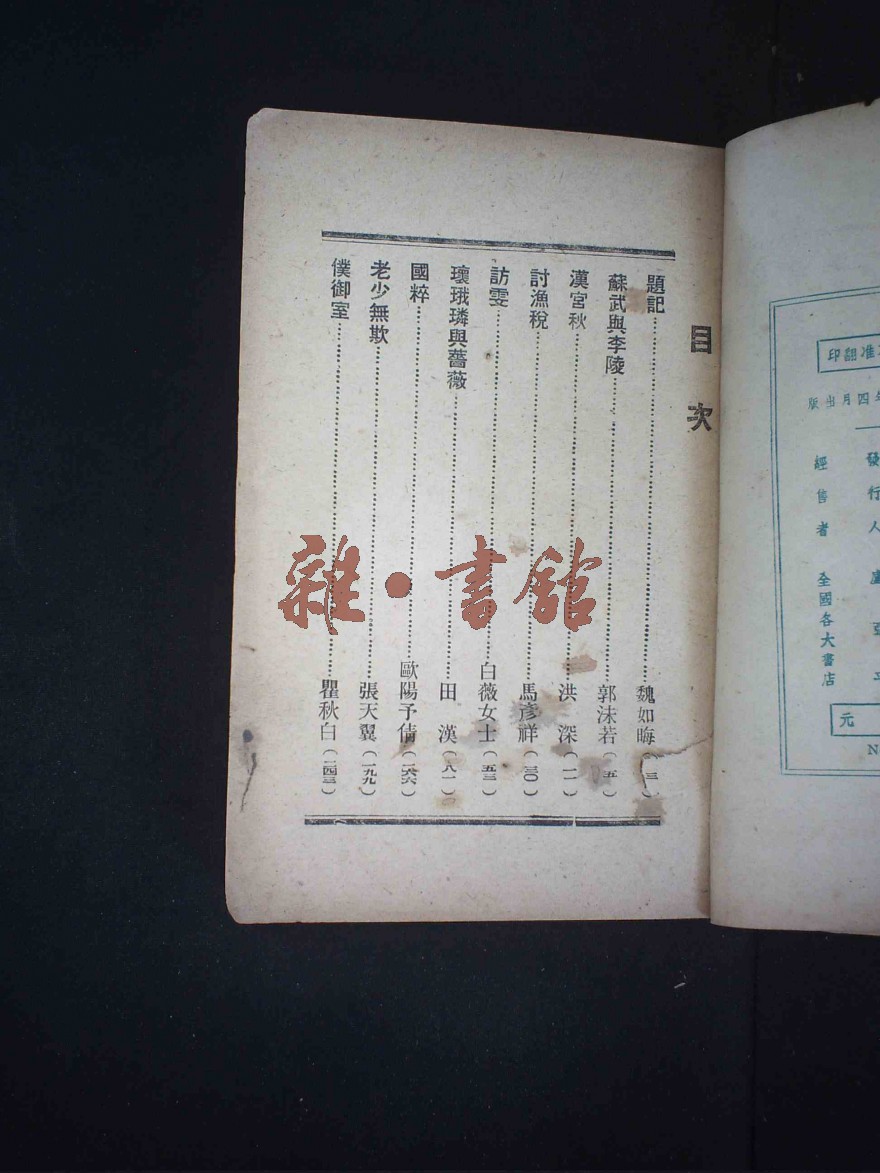 目次
題記……魏如晦(三)
蘇武與李陵……郭沫若(五)
漢宮秋……洪深(一一)
討漁稅……馬彥祥(三〇)
訪雯……白薇女士(五三)
瓌珴璘與薔薇……田漢(八一)
國粹
歐陽予倩
老少無欺……張天翼(一九九)
僕御室……瞿秋白(二四三)
雜·書舘
准翻印
年四月出版
發行人 盧亞平
經售者 全國各大書店
元
N